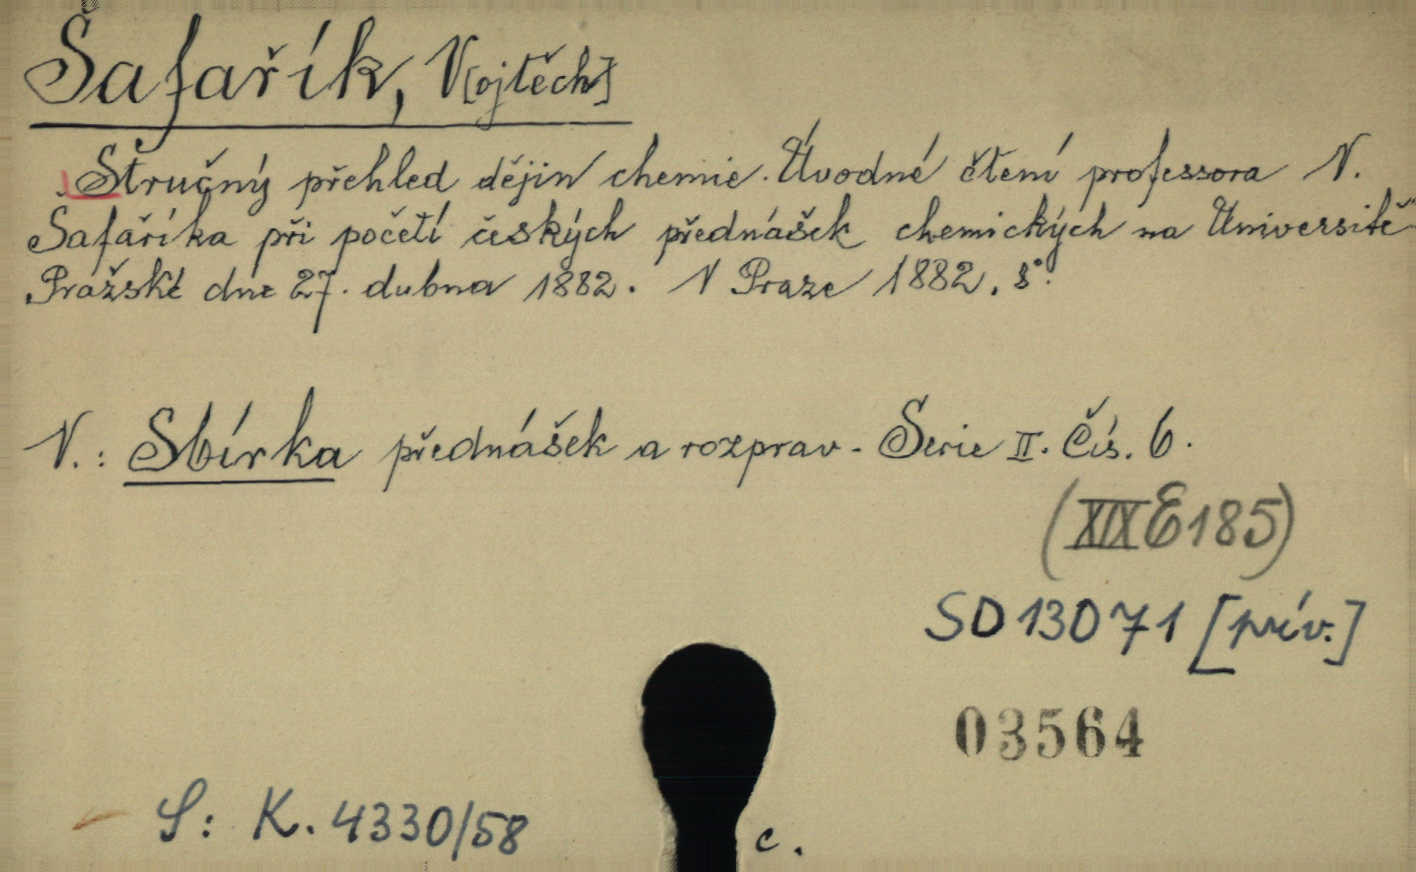 Šafařík, V[ojtěch]
Stručný přehled dějin chemie. Úvodné čtení professora V.
Šafaříka při početí českých přednášek chemických na Universitě
Pražské dne 27. dubna 1882. V Praze 1882. 8°.
V.: Sbírka přednášek a rozprav. Serie II. Čís. 6.
(XIX E 185)
SD 13071 [přív.]
03564
S: K. 4330/58
c.